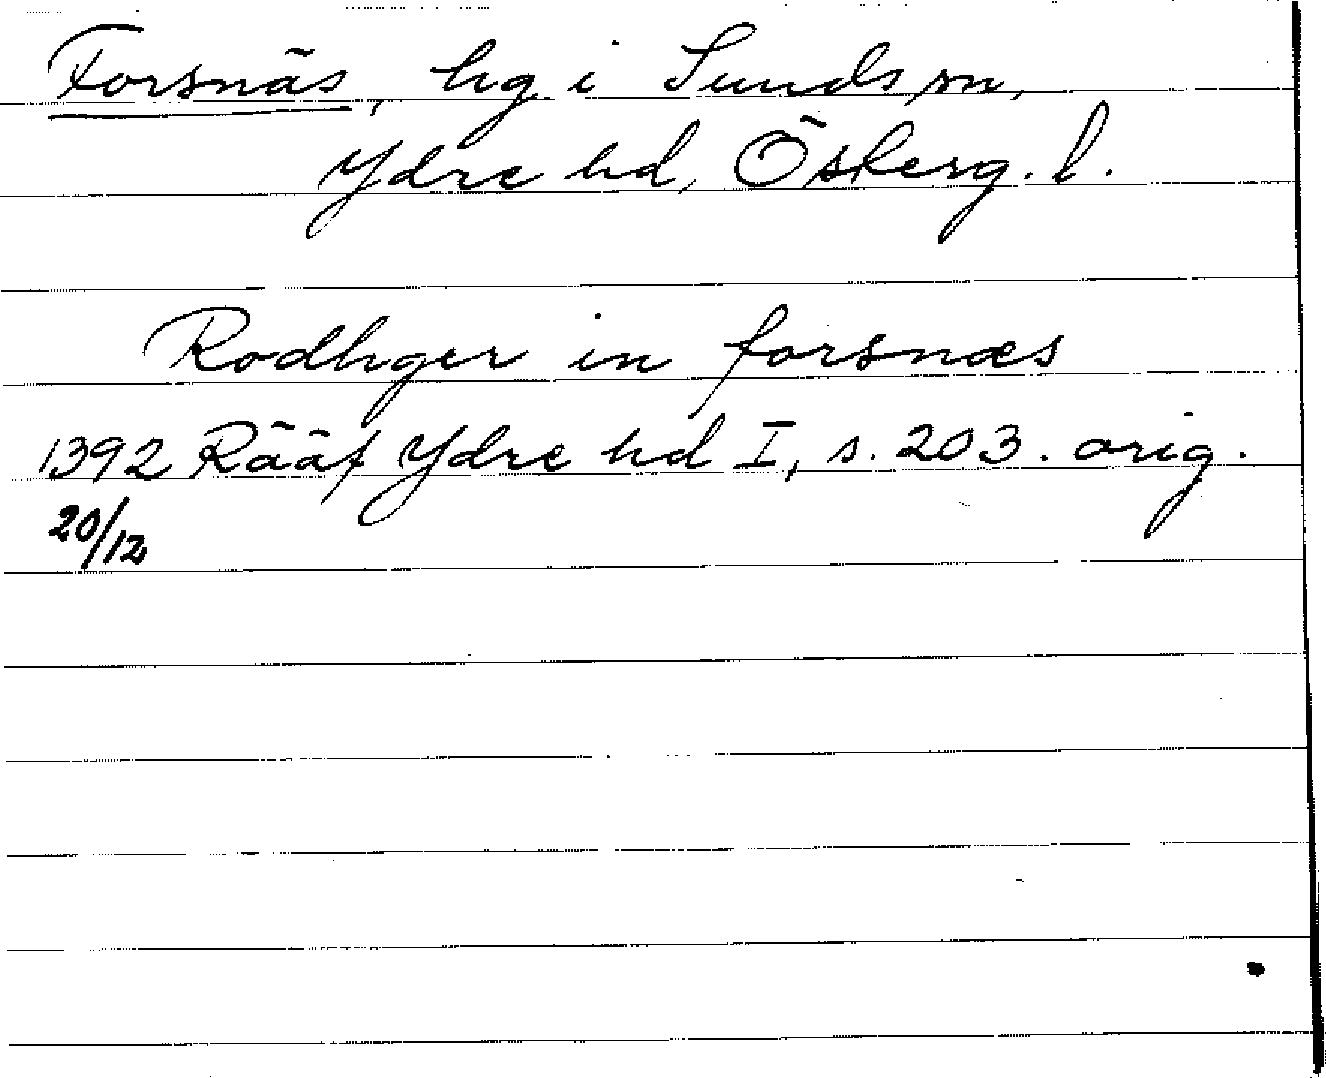 Forsnäs, hg i Sunds sn,
Ydre hd, Österg. l.
Rodhger in forsnæs
1392 Rääf Ydre hd I, s. 203. orig.
20/12